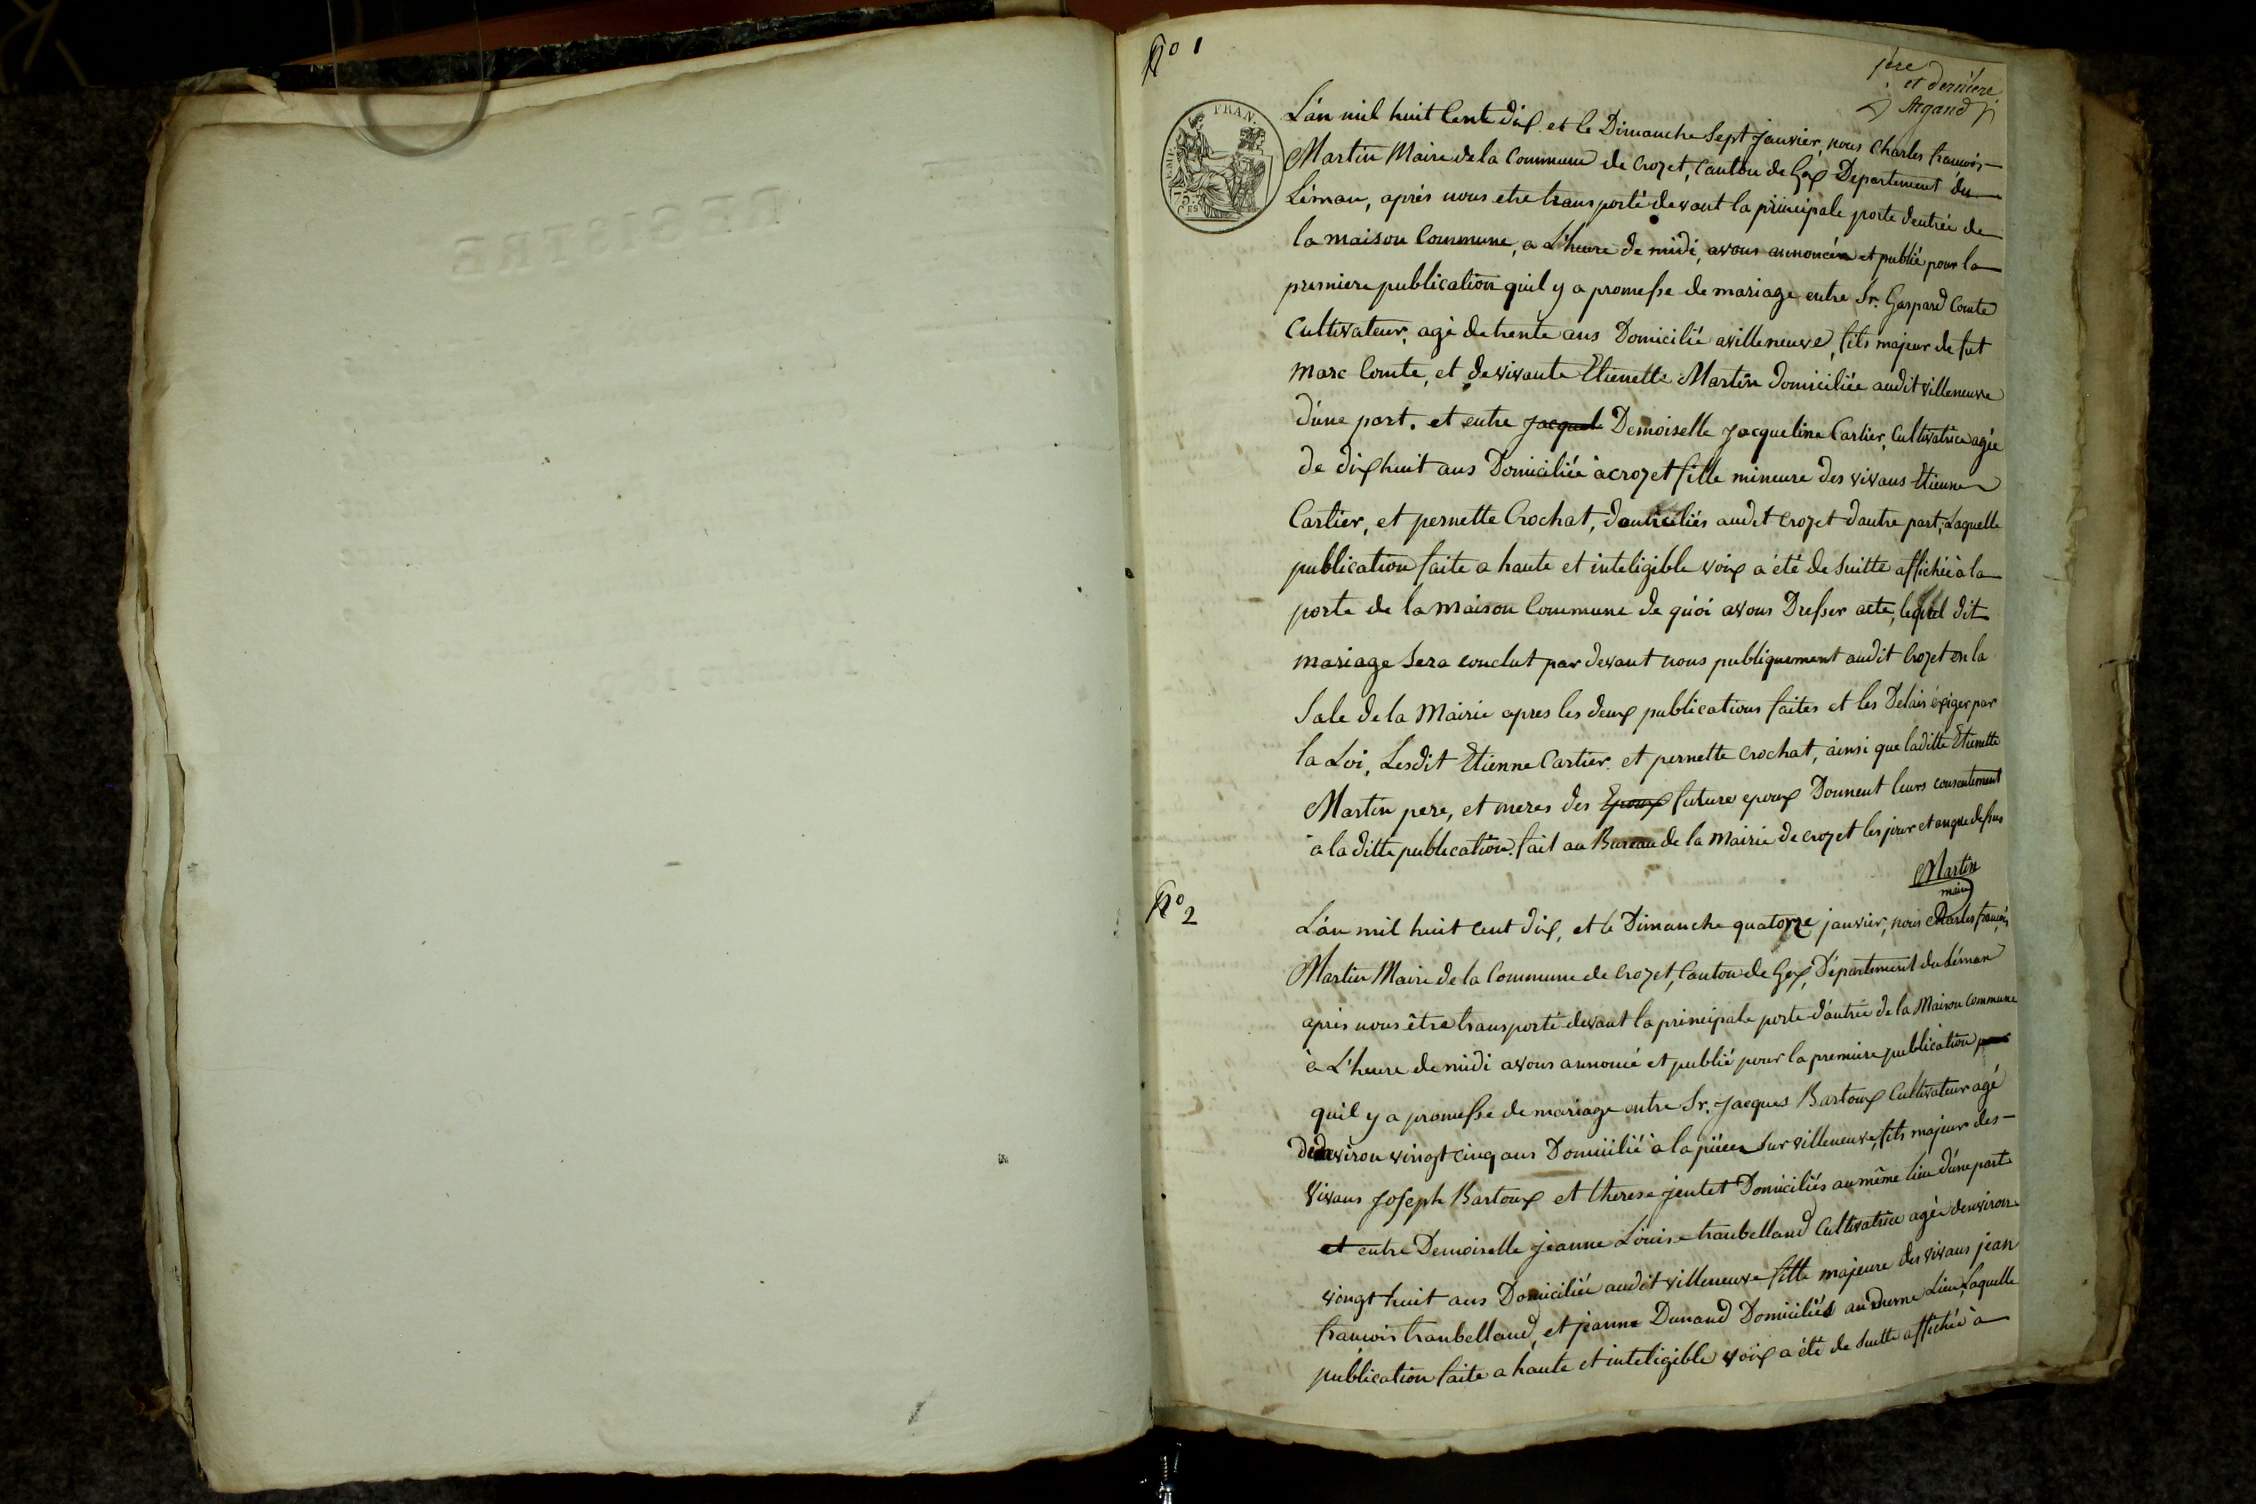 REGISTRE
Nº 1
1ere
et derniere
Argand
FRAN.
EMP.
75
CES
L'an mil huit Cent dix et le Dimanche Sept janvier, nous Charles francois
Martin Maire de la Commune de Crozet, Canton de Gex Departement du
Léman, aprés nous etre transporté devant la principale porte d'entrée de
la maison Commune, a L'heure de midi, avons annoncér et publié pour la
premiere publication quil y a promesse de mariage entre Sr. Gaspard Comte
Cultivateur, agé de trente ans Domicilié avilleneuve, fils majeur de fut
Marc Comte, et de vivante Etienette Martin domiciliée audit villeneuve
d'une part. et entre Jacquel Demoiselle Jacqueline Cartier, Cultivatrice agée
de dix huit ans Domiciliée à crozet fille mineure des vivans Etienne
Cartier, et pernette Crochat, domiciliés audit Crozet dautre part, Laquelle
publication faite a haute et inteligible voix a été de Suitte affichée à la
porte de la Maison Commune de quoi avons Dresser acte, lequel dit
mariage Sera conclut par devant nous publiquement audit Crozet en la
Sale de la Mairie apres les deux publications faites et les Delais éxiger par
la Loi, Lesdit Etienne Cartier et pernette Crochat, ainsi que laditte Etienette
Martin pere, et meres des Epoux futurs epoux Donnent leurs consentement
à la ditte publication. fait au Bureau de la Mairie de Crozet les jour et an que dessus
Martin
maire
Nº 2
L'an mil huit Cent dix, et le Dimanche quatorze janvier, nous Charles francois
Martin Maire de la Commune de Crozet, Canton de Gex, Département du Léman
aprés nous être transporté devant la principale porte d'antrée de la Maison Commune
à L'heure de midi avons annoncé et publié pour la premiere publication
quil y a promesse de mariage entre Sr. Jacques Bartoux Cultivateur agé
denviron vingt cinq ans Domicilié à la Sur villeneuve, fils majeur des
vivans Joseph Bartoux et therese jentet Domiciliés au même lieu d'une part
et entre Demoiselle jeanne Louise tranbelland Cultivatrice agée denviron
vingt huit ans Domiciliée audit villeneuve fille majeure des vivans jean
francois tranbelland, et jeanne Dunand Domiciliés au meme Lieu, Laquelle
publication faite a haute et inteligible voix a été de Suitte affichée à